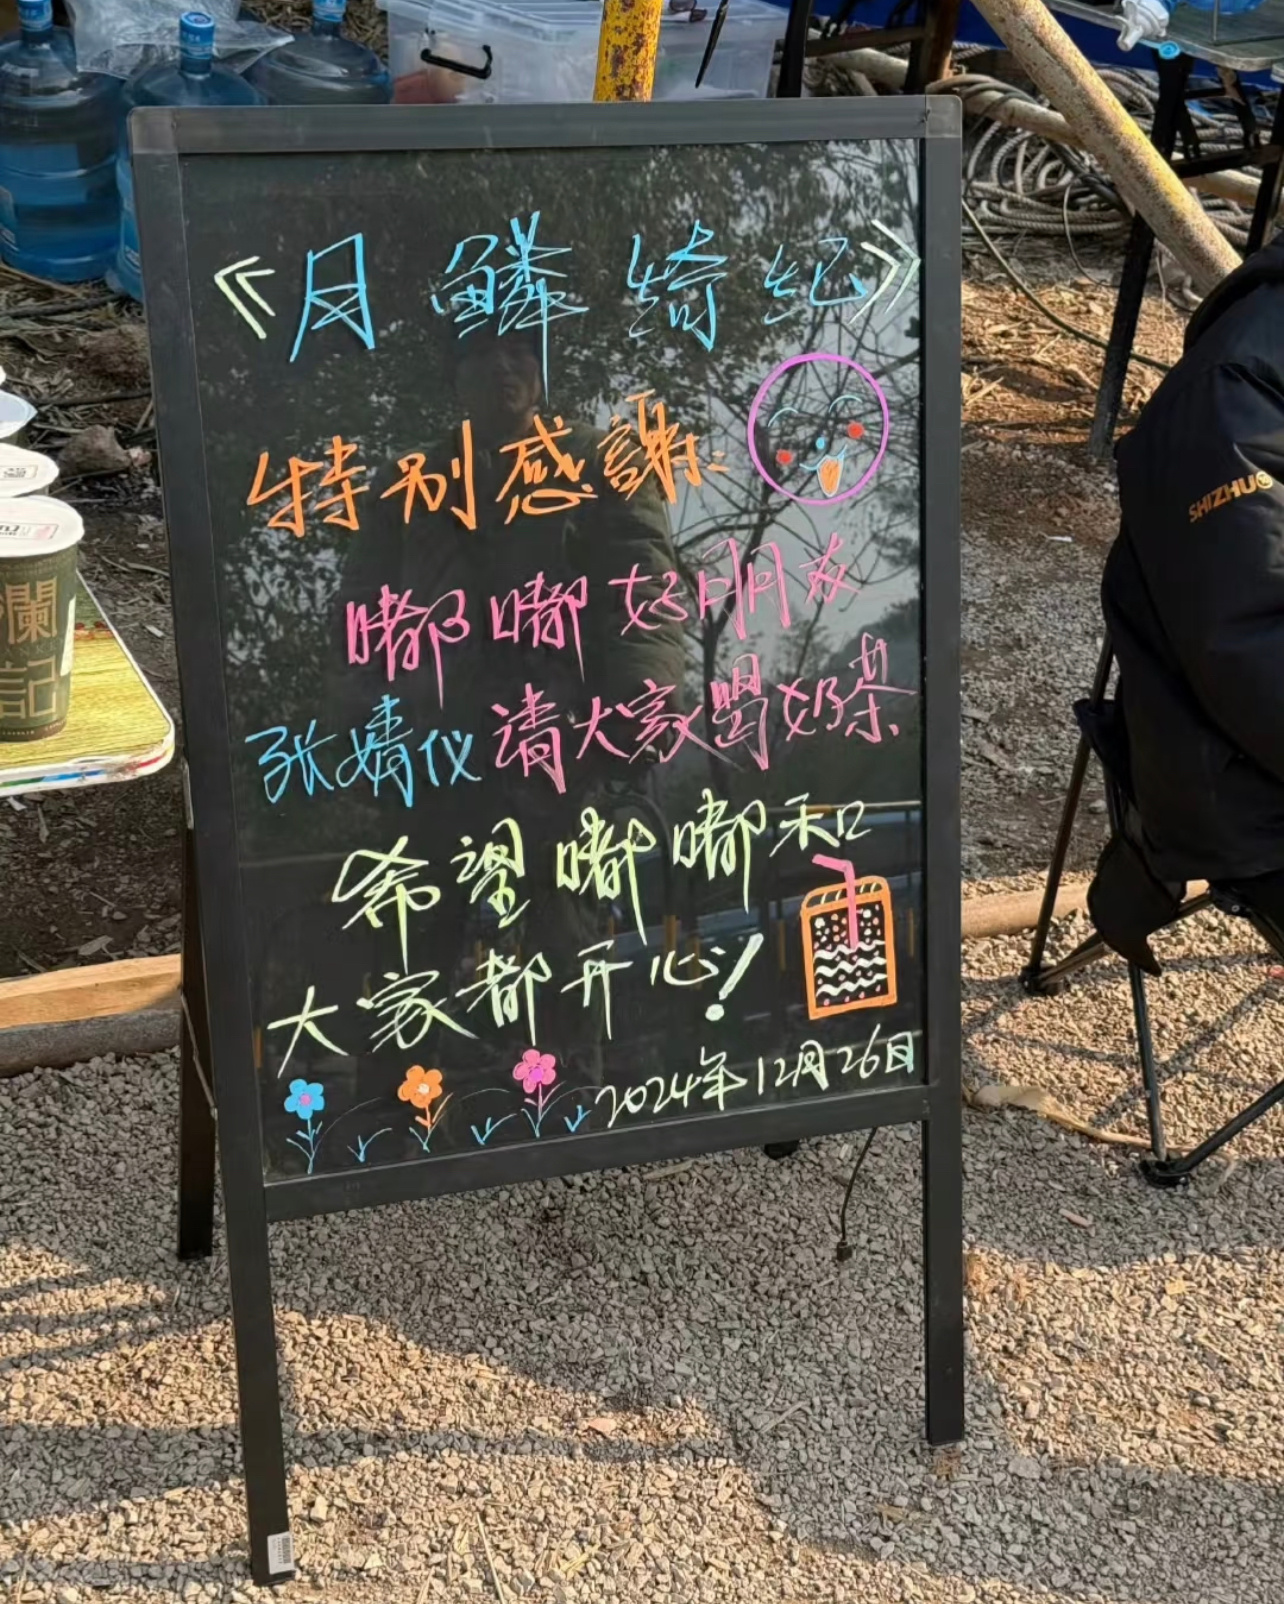 《月鳞绮纪》
特别感謝:
嘟嘟好朋友
张婧仪请大家喝奶茶
希望嘟嘟和
大家都开心!
2024年12月26日
瀾
記
SHIZHU